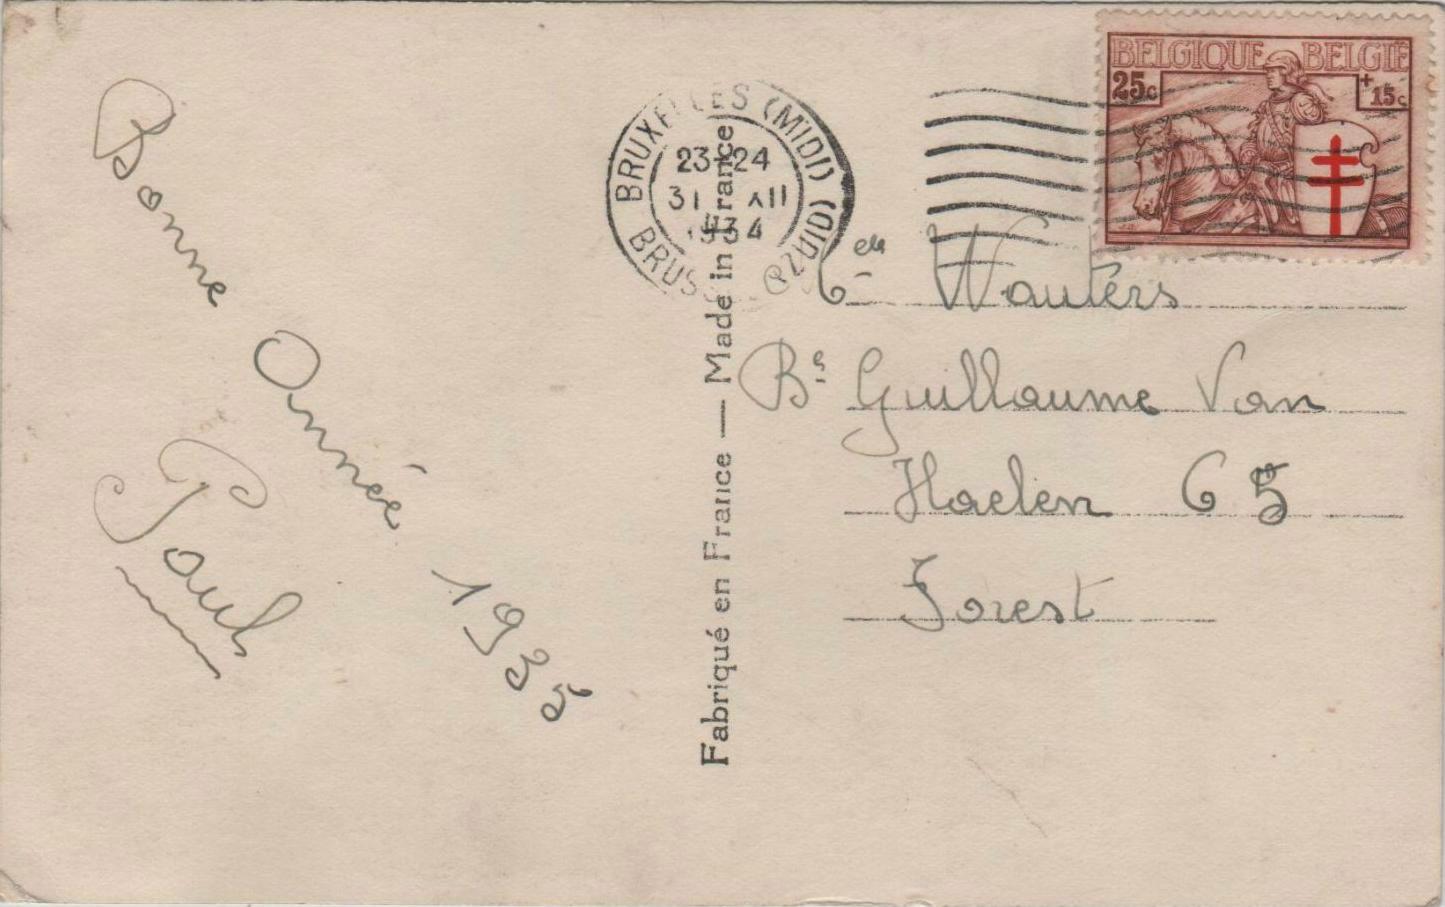 Bonne Année 1935
Paul
Fabriqué en France — Made in France
BRUXELLES (MIDI)
23-24
31 XII
1934
BRUSSEL (ZUID)
BELGIQUE BELGIË
25c
+15c
Wauters
Bd Guillaume Van
Haelen 65
Forest